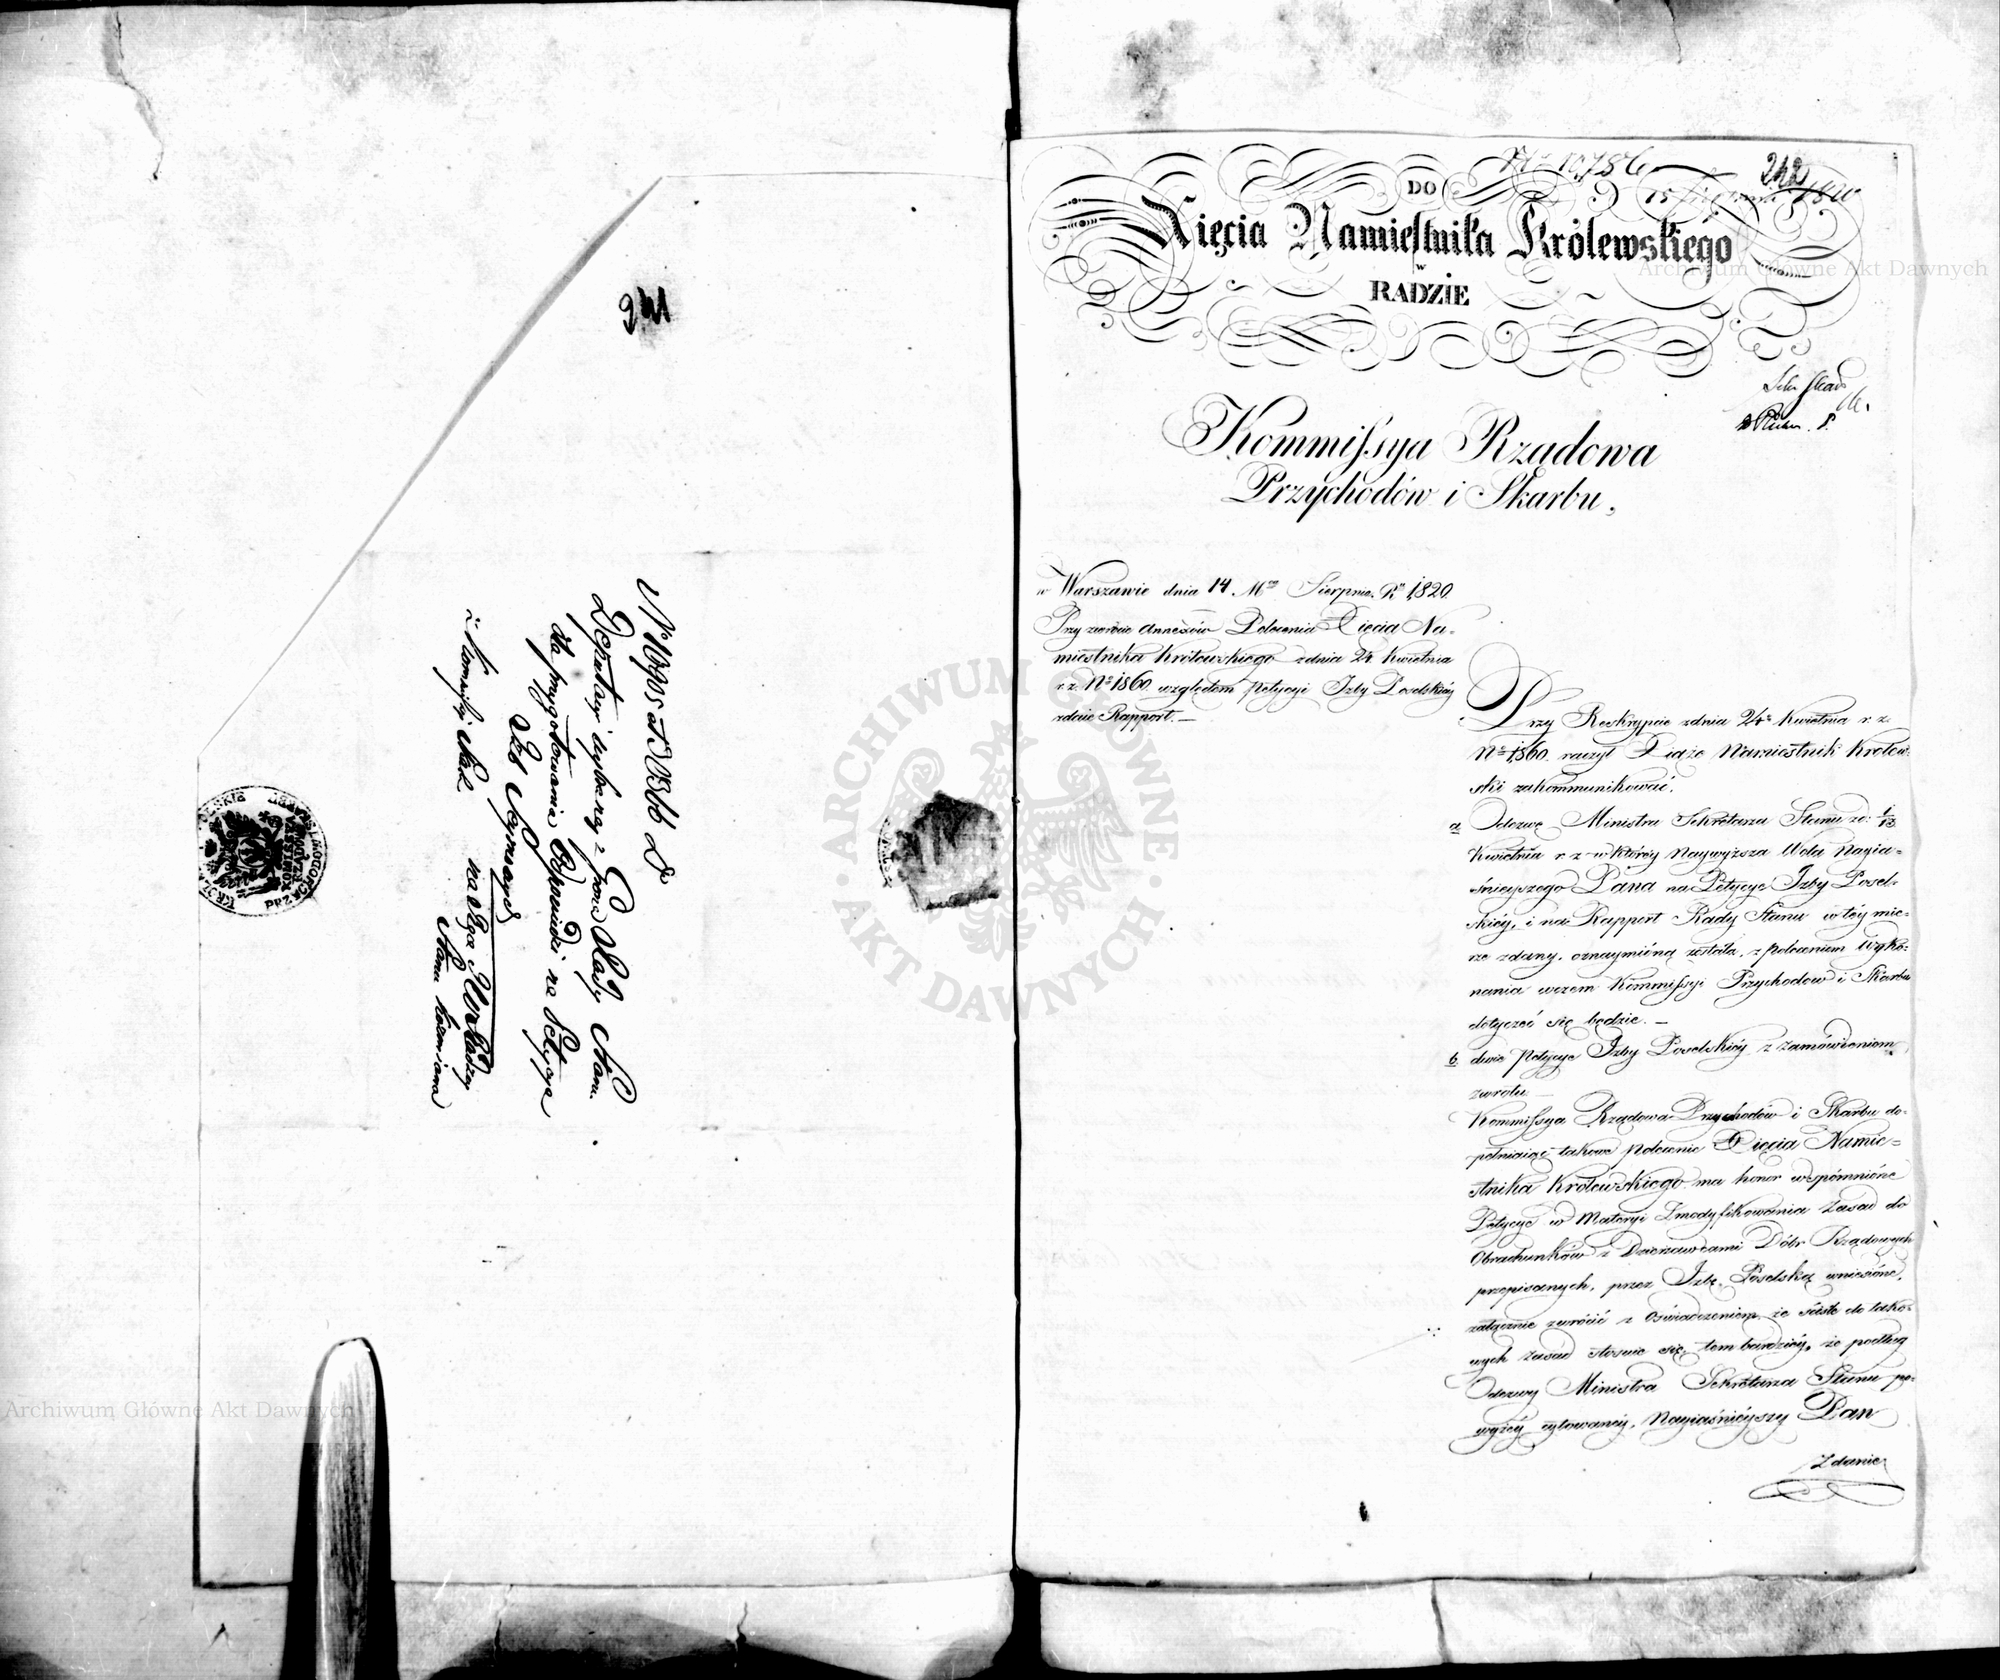 241
Deputacyi wybraney z grona Rady Stanu
do przygotowania Odpowiedzi na Petycye
Izb Seymowych
w Kommissyi Rządowey
na Ręce
Stanu Koźmiana
242
DO
Xięcia Namiestnika Królewskiego
w
RADZIE
Kommissya Rządowa
Przychodów i Skarbu,
w Warszawie dnia 14. Mca Sierpnia Rº 1820.
Przy zwrocie annexów Polecenia Xięcia Na=
miestnika Królewskiego zdnia 24 Kwietnia
r. z. Nº 1860. względem petycyi Izby Poselskiéy
zdaie Rapport. —
Przy Reskrypcie zdnia 24º Kwietnia r. z.
Nº 1860. raczył Xiąże Namiestnik Królew=
ski zakommunikować.
a Odezwę Ministra Sekretarza Stanu zd: 1/13
Kwietnia r. z. w któréy Naywyższa Wola Nayia=
śnieyszego Pana na Petycye Izby Posel=
skiéy, i na Rapport Rady Stanu w téy mie=
rze zdany, oznaymioną została, z poleceniem wyko=
nania wczem Kommissyi Przychodów i Skarbu
dotyczeć się będzie. —
b. dwie Petycye Izby Poselskiéy z zamówieniem
zwrotu. —
Kommissya Rządowa Przychodów i Skarbu do=
pełniaiąc takowe polecenie Xięcia Namie=
stnika Królewskiego ma honor wspomnione
Petycye w Materyi Zmodyfikowania Zasad do
Obrachunków z Dzierżawcami Dóbr Rządowych
przepisanych, przez Izbę Poselską wniesione,
załącznie zwrócić z Oświadczeniem, że ściśle do tako=
wych Zasad stosuie się, tem bardziéy, że podług
Odezwy Ministra Sekretarza Stanu po=
wyżéy cytowanéy, Nayiaśniéyszy Pan
Zdanie